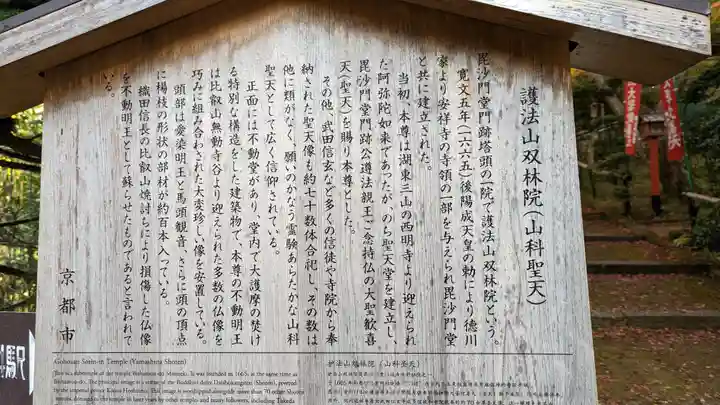 護法山双林院(山科聖天)
毘沙門堂門跡塔頭の一院で護法山双林院という。
寛文五年(一六六五)後陽成天皇の勅により徳川
家より安祥寺の寺領の一部を与えられ毘沙門堂
と共に建立された。
当初、本尊は湖東三山の西明寺より迎えられ
た阿弥陀如来であったが、のち聖天堂を建立し、
毘沙門堂門跡公遵法親王ご念持仏の大聖歓喜
天(聖天)を賜り本尊とした。
その他、武田信玄など多くの信徒や寺院から奉
納された聖天像も約七十数体合祀し、その数は
他に類がなく、願いのかなう霊験あらたかな山科
聖天として広く信仰されている。
正面には不動堂があり、堂内で大護摩の焚け
る特別な構造をした建築物で、本尊の不動明王
は比叡山無動寺谷より迎えられた多数の仏像を
巧みに組み合わされた大変珍しい像を安置している。
頭部は愛染明王と馬頭観音、さらに頭の頂点
に楊枝の形状の部材が約百本入っている。
織田信長の比叡山焼討ちにより損傷した仏像
を不動明王として蘇らせたものであると言われて
いる。
京都市
Gohozan Sorin-in Temple (Yamashina Shoten)
This is a subtemple of the temple Bishamon-do Monzeki. It was founded in 1665, at the same time as
Bishamon-do. The principal image is a statue of the Buddhist deity Daishokangiten (Shoten), revered
by the imperial prince Kojun Hoshinno. That image is worshipped alongside more than 70 other Shoten
statues, donated to the temple in later years by other temples and many followers, including Takeda
护法山双林院 (山科圣天)
駅